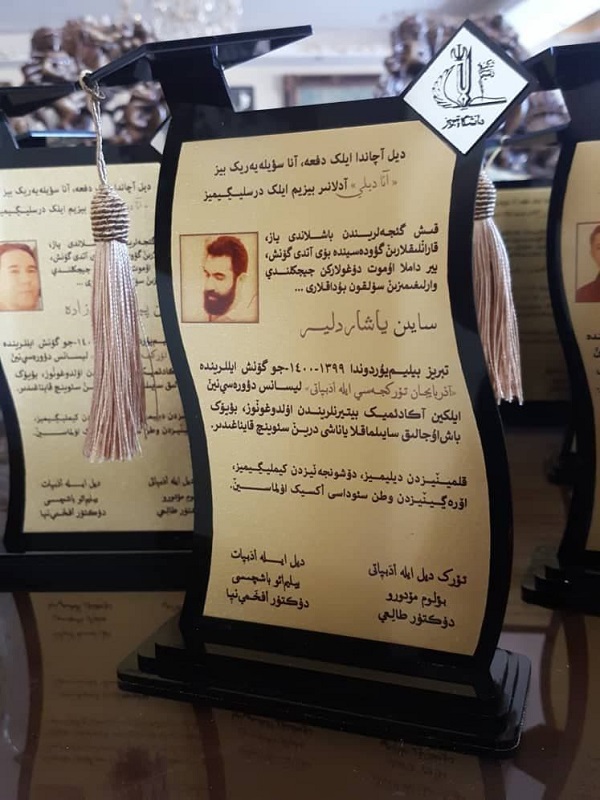 دانشگاه تبریز
دیل آچاندا ایلک دفعه، آنا سؤیله‌یه‌ریک بیز
« آنا دیلی» آدلانیر بیزیم ایلک درسلیگیمیز
قیش گئجه‌لریندن باشلاندی یاز،
قارانلیقلارین گؤوده‌سینده بؤی آتدی گۆنش،
بیر داملا اۆموت دۏغولارکن چیچکلندی
وارلیغیمیزین سۏلقون بۇداقلاری ...
سایین یاشار دلیر
تبریز بیلیم‌یۇردوندا ۱۳۹۹-۱۴۰۰-جو گۆنش ایللرینده
«آذربایجان تۆرکجه‌سی ایله ادبیاتی» لیسانس دؤوره‌سی‌نین
ایلکین آکادئمیک بیتیرنلریندن اۏلدوغونۇز، بؤیۆک
باش‌اۇجالیق ساییلماقلا یاناشی درین سئوینج قایناغیدیر.
قلمینیزدن دیلیمیز، دۆشونجه‌نیزدن کیملیگیمیز،
اۆره‌گینیزدن وطن سئوداسی اکسیک اۏلماسین.
تۆرک دیل ایله ادبیاتی
بؤلوم مۆدورو
دۏکتۏر طالعی
دیل ایله ادبیات
بیلیم‌ائو باشچیسی
دۏکتۏر افخمی‌نیا